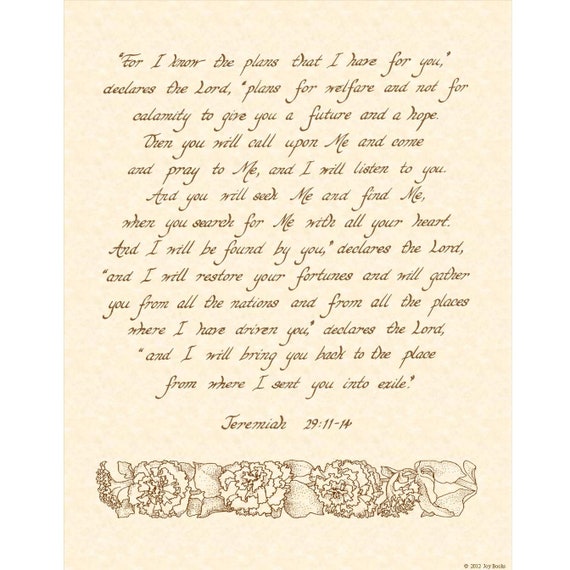 "For I know the plans that I have for you,"
declares the Lord, "plans for welfare and not for
calamity to give you a future and a hope.
Then you will call upon Me and come
and pray to Me, and I will listen to you.
And you will seek Me and find Me,
when you search for Me with all your heart.
And I will be found by you," declares the Lord,
"and I will restore your fortunes and will gather
you from all the nations and from all the places
where I have driven you," declares the Lord,
"and I will bring you back to the place
from where I sent you into exile."
Jeremiah 29:11-14
© 2012 Joy Books